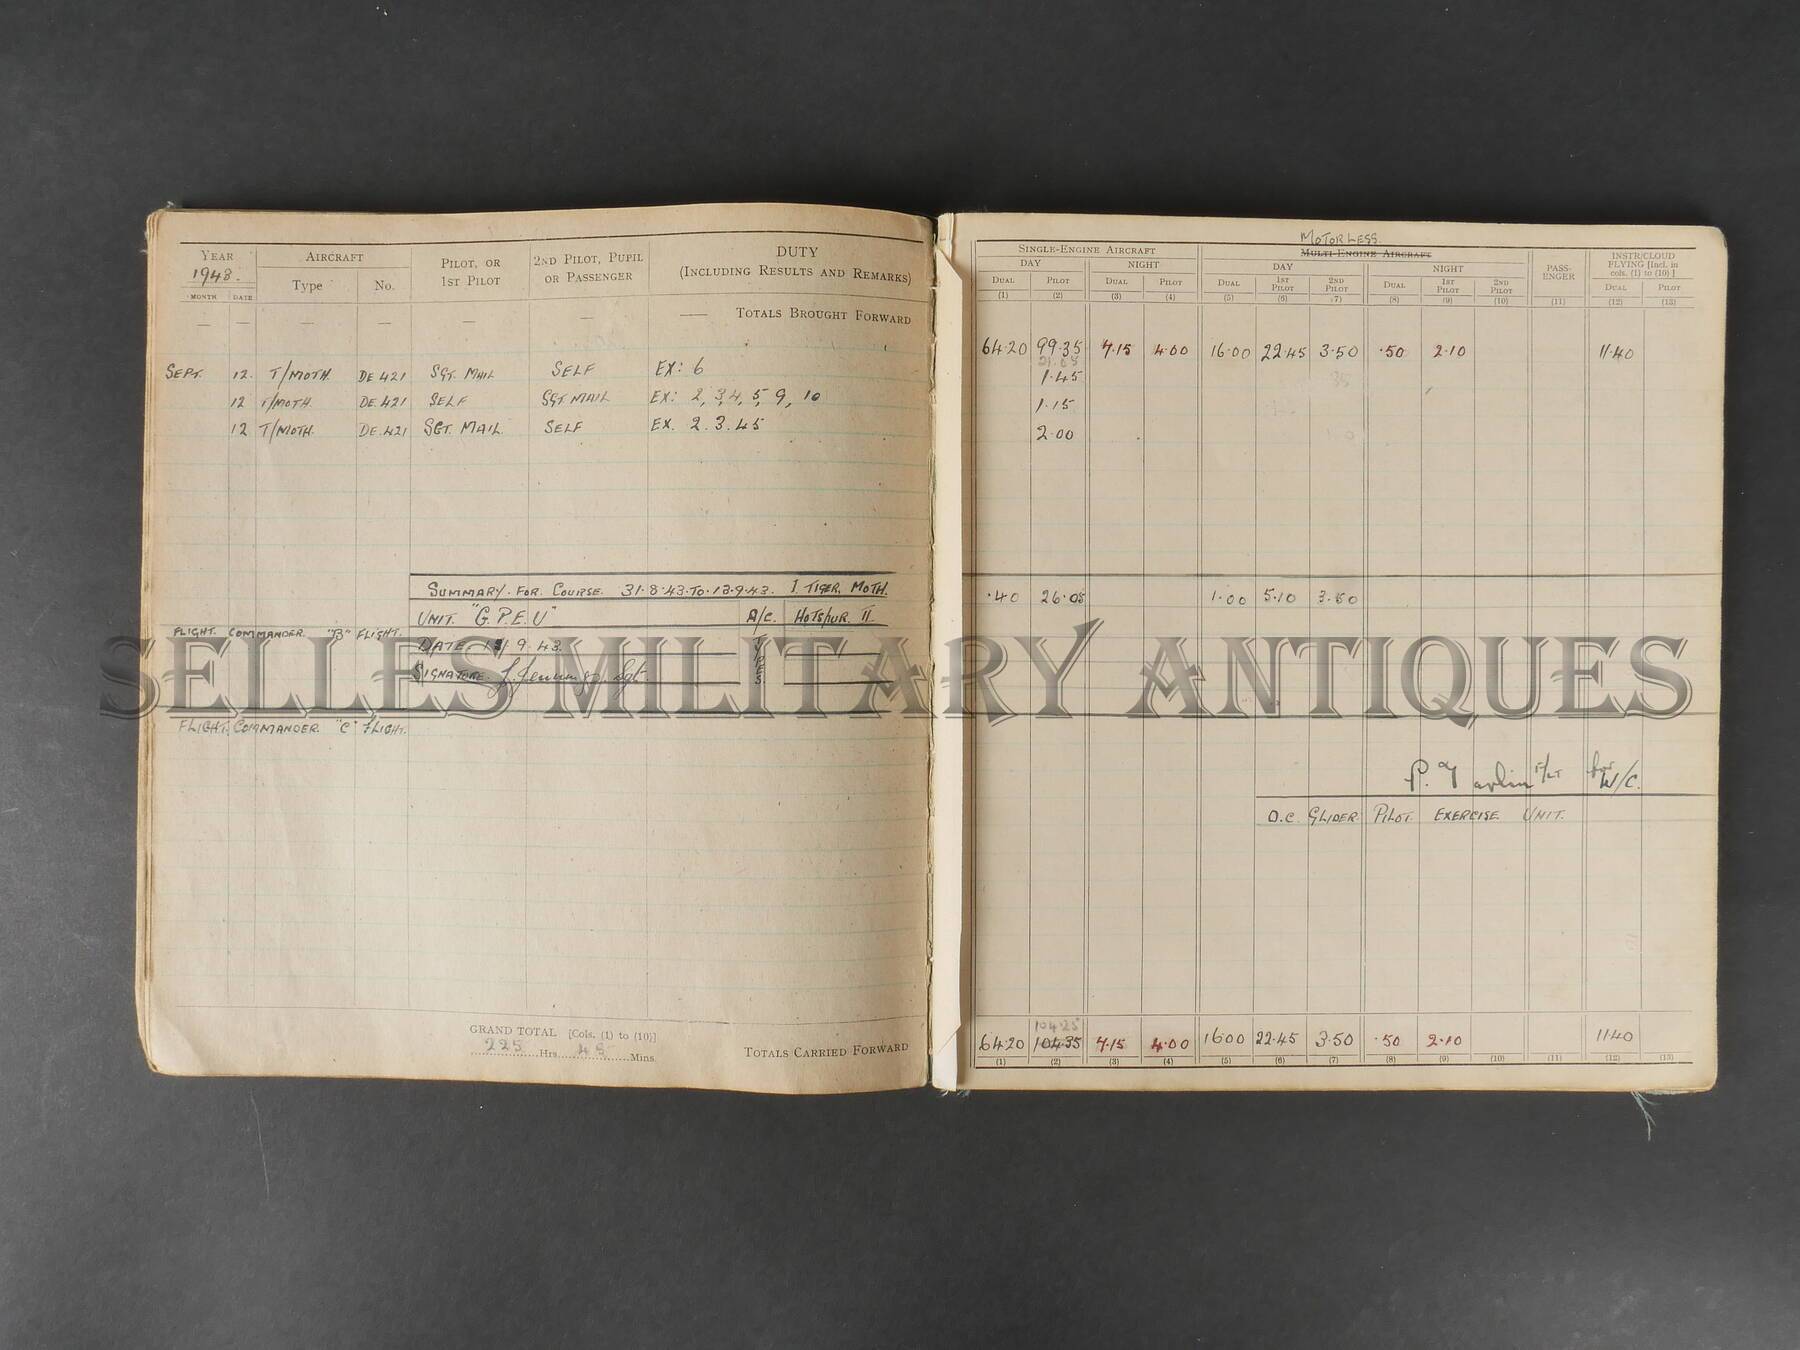 YEAR AIRCRAFT PILOT, OR 1ST PILOT 2ND PILOT, PUPIL OR PASSENGER DUTY (INCLUDING RESULTS AND REMARKS)
1943. Type No.
MONTH DATE
— — — — — — — TOTALS BROUGHT FORWARD
SEPT. 12. T/MOTH. DE 421 SGT. MAIL SELF EX: 6
12 T/MOTH. DE.421 SELF SGT MAIL EX: 2, 3, 4, 5, 9, 10
12 T/MOTH. DE.421 SGT. MAIL. SELF EX. 2. 3. 4 5
SUMMARY. FOR. COURSE. 31.8.43. TO. 13.9.43. 1 TIGER. MOTH.
UNIT. "G.P.E.U" A/C. HOTSPUR. II.
FLIGHT. COMMANDER. "B" FLIGHT.
DATE 9.43. TYPES.
SIGNATURE. J. Jennings. Sgt.
FLIGHT. COMMANDER. "C" FLIGHT.
GRAND TOTAL [Cols. (1) to (10)]
225 Hrs. 45 Mins.
TOTALS CARRIED FORWARD
MOTORLESS.
SINGLE-ENGINE AIRCRAFT MULTI-ENGINE AIRCRAFT PASS-ENGER INSTR/CLOUD FLYING [Incl. in cols. (1) to (10)]
DAY NIGHT DAY NIGHT
DUAL PILOT DUAL PILOT DUAL 1ST PILOT 2ND PILOT DUAL 1ST PILOT 2ND PILOT DUAL PILOT
(1) (2) (3) (4) (5) (6) (7) (8) (9) (10) (11) (12) (13)
64.20 99.35 7.15 4.00 16.00 22.45 3.50 .50 2.10 11.40
1.45
1.15
2.00
.40 26.05 1.00 5.10 3.50
F/LT for W/C.
O.C. GLIDER. PILOT. EXERCISE. UNIT.
104.25
64.20 104.35 7.15 4.00 16.00 22.45 3.50 .50 2.10 11.40
(1) (2) (3) (4) (5) (6) (7) (8) (9) (10) (11) (12) (13)
SELLES MILITARY ANTIQUES